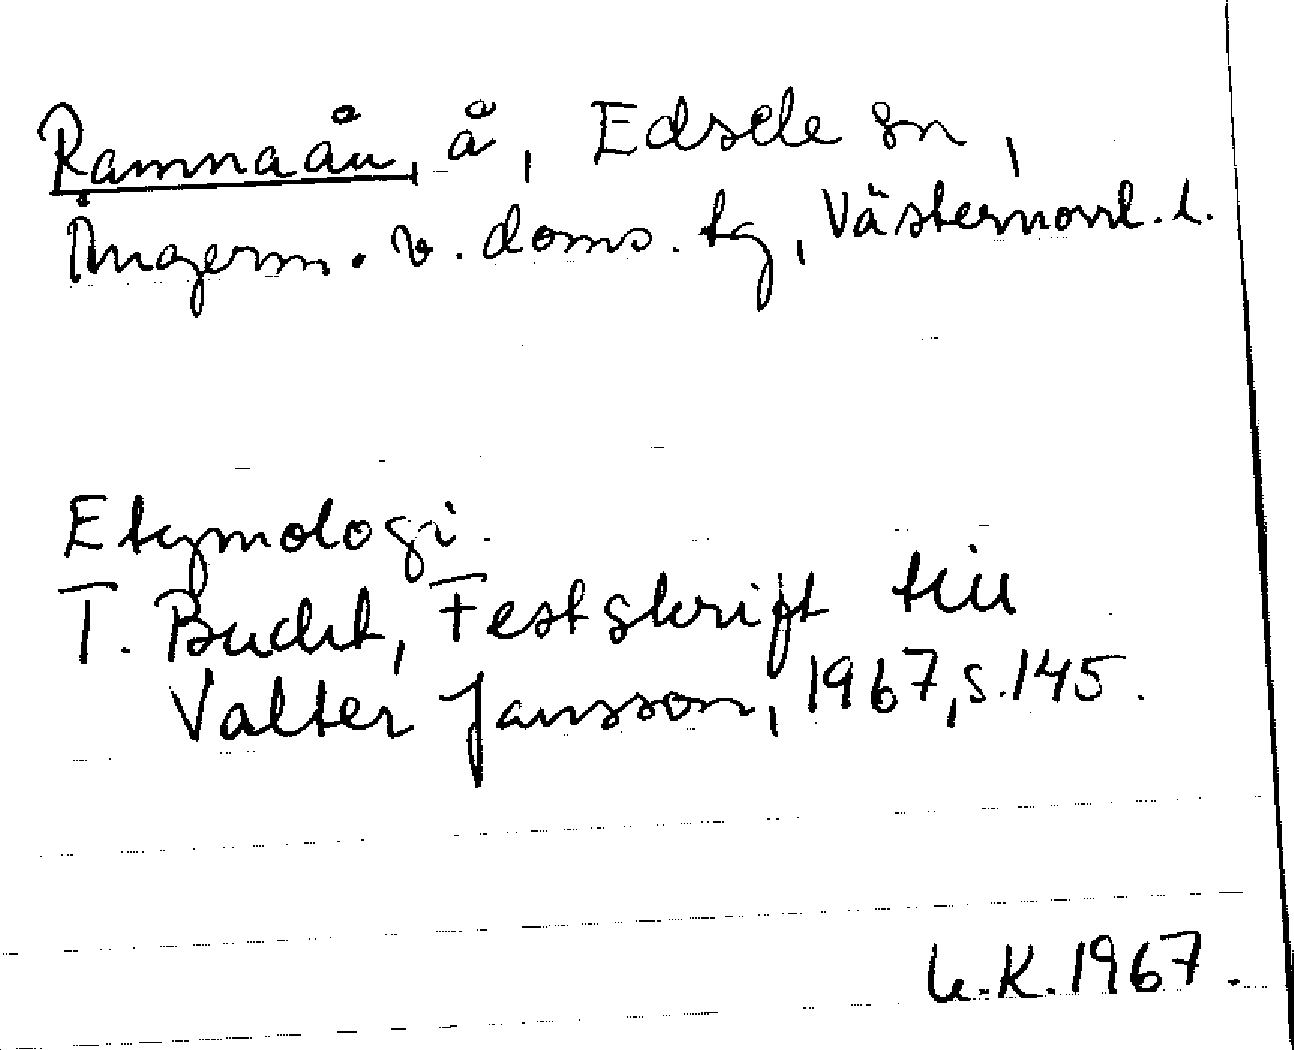 Ramnaån, å, Edsele sn,
Ångerm. v. doms. tg, Västernorrl. l.
Etymologi.
T. Bucht, Festskrift till
Valter Jansson, 1967, s. 145.
K. 1967.